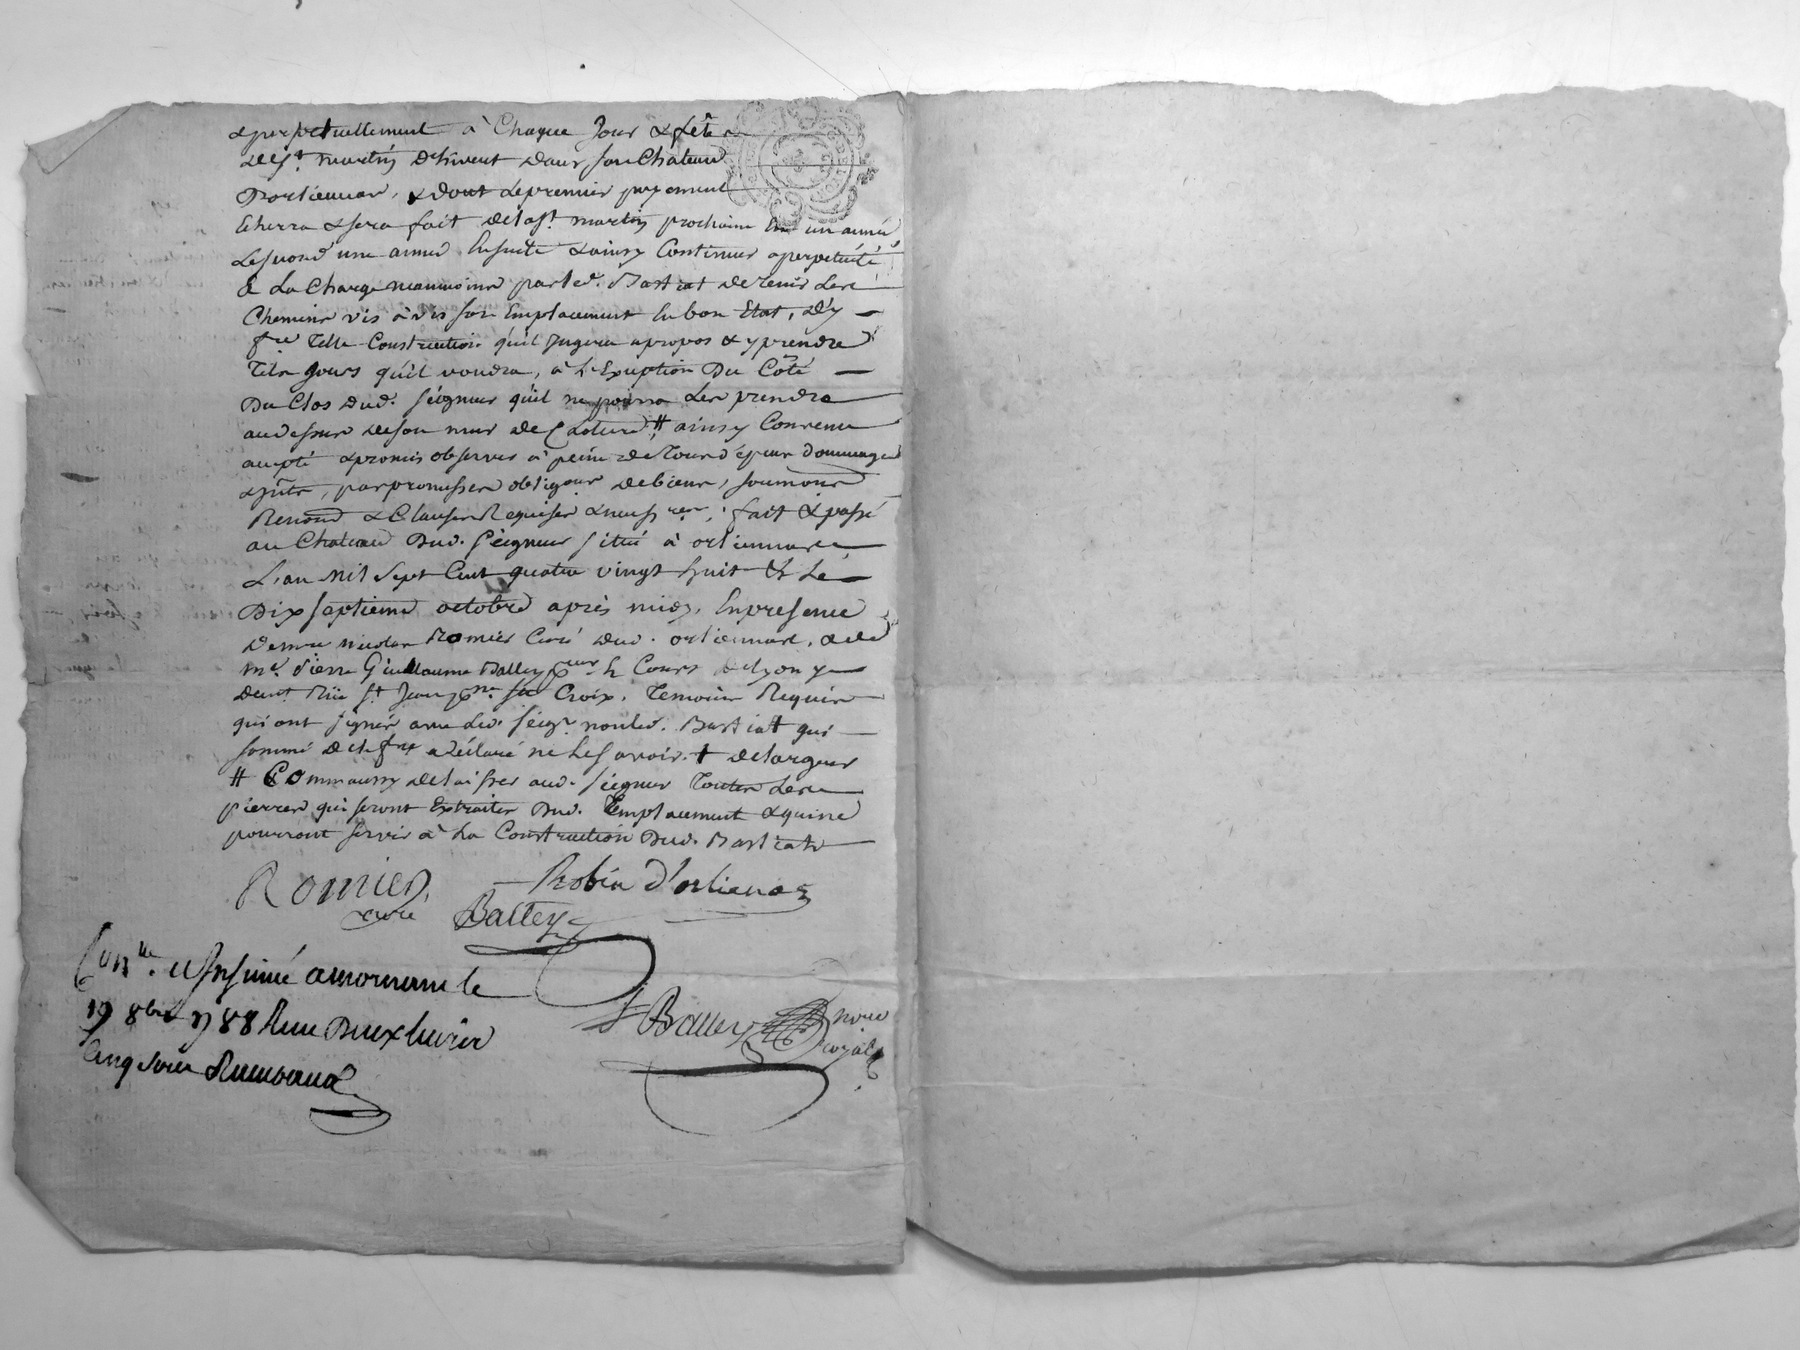 &perpetuellement à Chaque Jour & fête
de st martin dhivert dans son Château
Dorliennas, & dont le premier payement
Eherra & sera fait de la st martin prochaine En un année
Le second une année Ensuite & ainsy Continuer a perpetuité
à La Charge neanmoins par led. Bastiat de tenir Les
Chemins vis à vis son Emplacement En bon Etat, D'y
fre Telle Construction qu'il Jugera apropos & y prendre
Tels Jours qu'il voudra, à L'Exception Du Côté
Du Clos dud. seigneur qu'il ne pourra Les prendre
au dessus de son mur de Cloture # ainsy Convenu
accepté & promis observer à peine de Tous dépens dommages
& jnts, par promesses obligaons de biens, soumons
Renons & Clauses Requises & necessres, fait & passé
au Château Dud. seigneur situé à orliennas
L'an Mil Sept Cent quatre vingt huit & Le
Dix septieme octobre après midy, En presence
de mre nicolas Romier Curé dud. orliennas, & de
me Pierre Guillaume Balley pcur Es Cours de Lyon y
demt Rüe st Jean psse ste Croix, Temoins Requis
qui ont signés avec led. seigr non led. Bastiatt qui
sommé de le fre a déclaré ne Le savoir. + de largeur
# Comm aussy de laisser aud. seigneur Toutes Les
pierres qui seront Extraites Dud. Emplacement & qui ne
pourront servir à La Construction Dud. Bastiat
Romier Robin d'orlienas
curé Balley
Conlle et Insinué a mornant le
19 8bre 1788 Reçu Deux livres
Cinq sous
Balley nore
royal